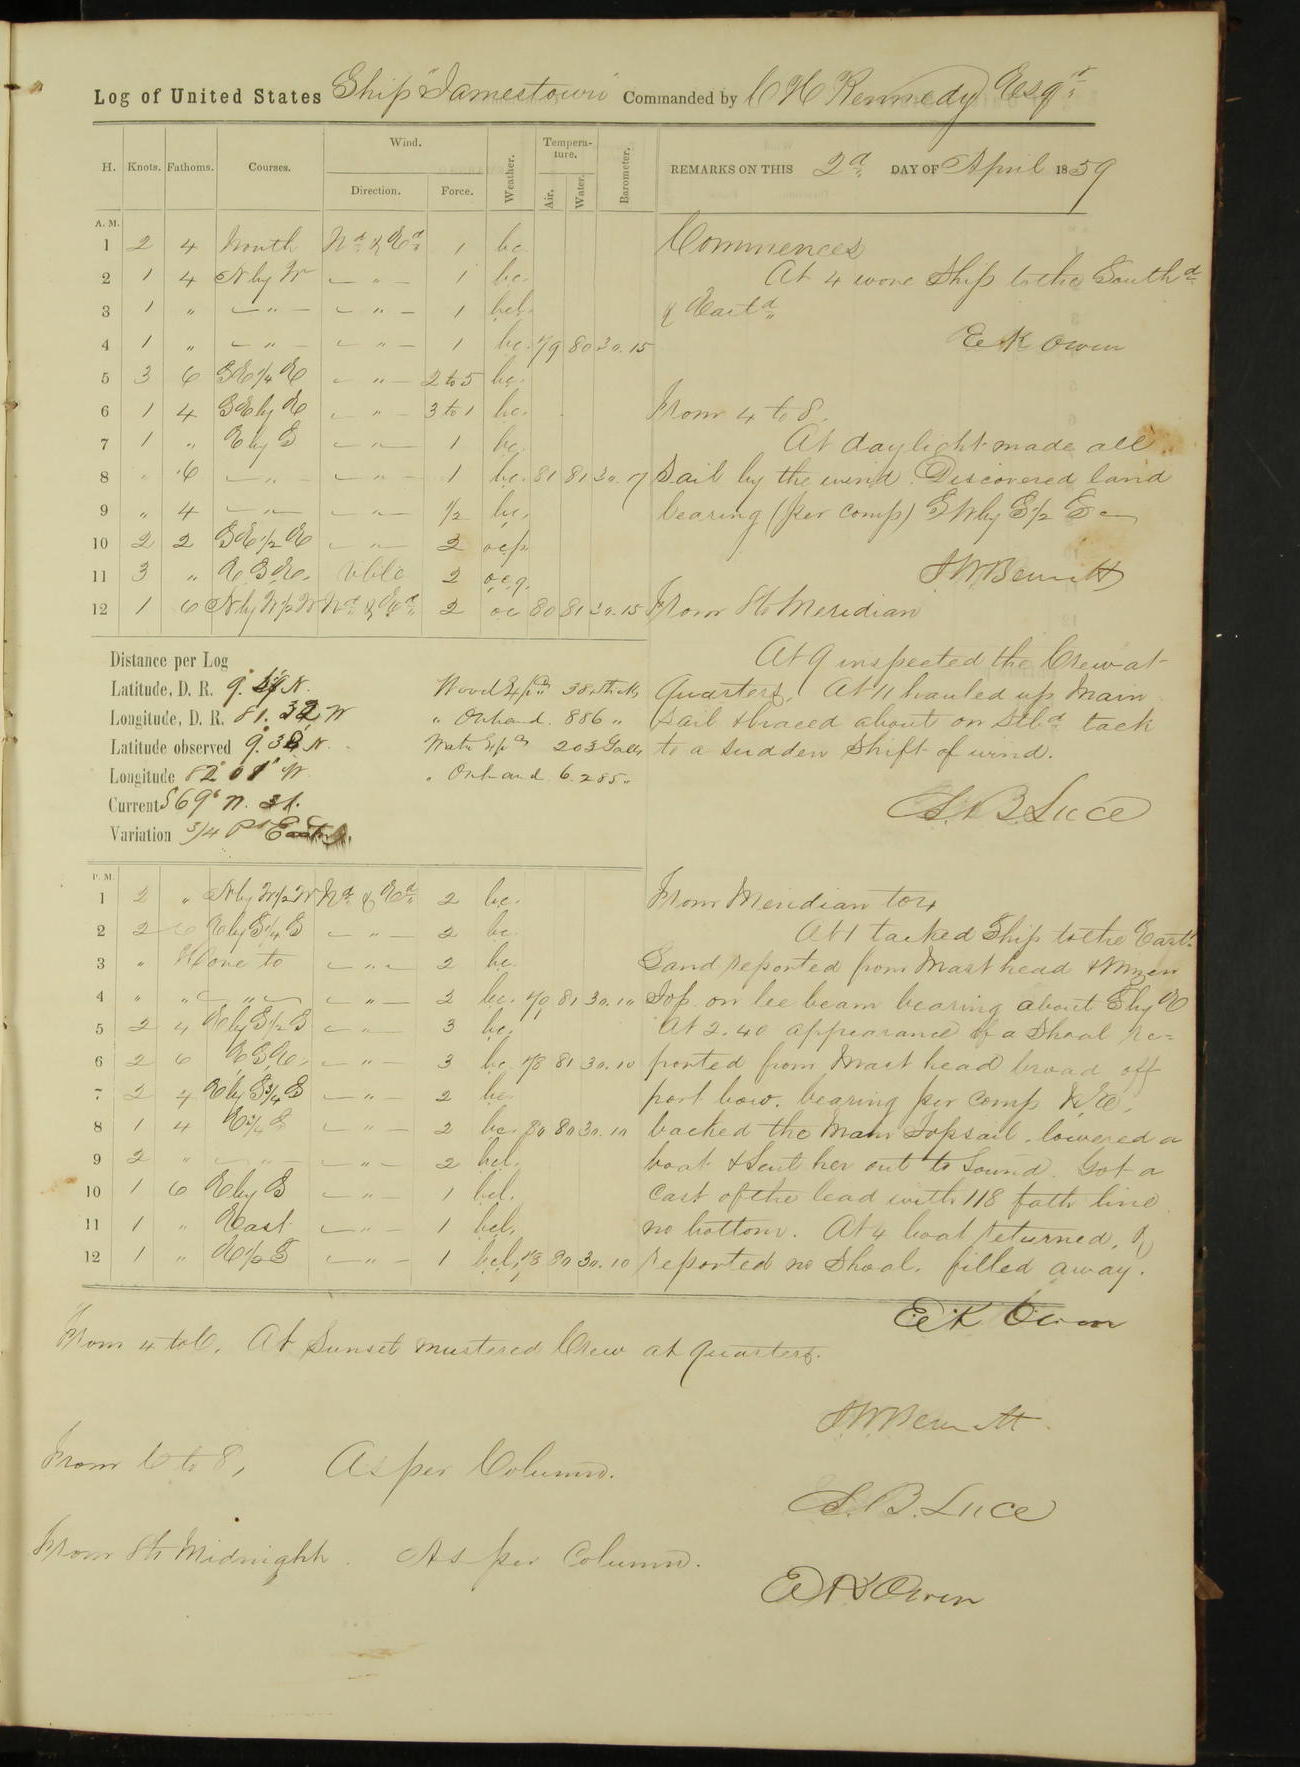 Log of United States Ship "Jamestown" Commanded by C H Kennedy Esqr
H. Knots. Fathoms. Courses. Wind. Direction. Force. Weather. Tempera-ture. Air. Water. Barometer. REMARKS ON THIS 2d DAY OF April 1859
A. M.
1 2 4 North Nd & Ed 1 bc.
2 1 4 N by W " 1 bc.
3 1 " " " 1 bcl.
4 1 " " " 1 bc. 79 80 30.15
5 3 6 SE 1/4 E " 2 to 5 bc.
6 1 4 SE by E " 3 to 1 bc.
7 1 " E by S " 1 bc.
8 " 6 " " 1 bc. 81 81 30.17
9 " 4 " " 1/2 bc.
10 2 2 SE 1/2 E " 2 ocp
11 3 " E.S.E. Vble 2 ocq.
12 1 6 N by W 1/2 W Nd & Ed 2 oc 80 81 30.15
Commences
At 4 wore Ship to the Southd
& Eastd
E K Owen
From 4 to 8.
At daylight made all
sail by the wind. Discovered land
bearing (per comp) S W by S 1/2 S
J W Bennett
From 8 to Meridian
At 9 inspected the Crew at
Quarters. At 11 hauled up Main
sail & braced about on Stbd tack
to a sudden shift of wind.
S. B. Luce
Distance per Log
Latitude, D. R. 9. N.
Longitude, D. R. 81. 32 W
Latitude observed 9. 38 N.
Longitude 82 01 W.
Current S 69° W. 31.
Variation 3/4 Pt
Wood Expd 38 sticks
" On hand. 886 "
Water Expd 203 Galls
" On hand 6.285 "
P. M.
1 2 " N by W 1/2 W Nd & Ed 2 bc.
2 2 6 E by S 1/4 S " 2 bc.
3 " Hove to " 2 bc.
4 " " " " 2 bc. 79 81 30.10
5 2 4 E by S 1/2 S " 3 bc.
6 2 6 E S E. " 3 bc 78 81 30.10
7 2 4 E by S 3/4 S " 2 bc
8 1 4 E 3/4 S " 2 bc. 80 80 30.10
9 2 " " " 2 bcl.
10 1 6 E by S " 1 bcl.
11 1 " East " 1 bcl.
12 1 " E 1/2 S " 1 bcl. 78 80 30.10
From Meridian to 4
At 1 tacked Ship to the Eastd
Land reported from Mast head & Mizen
Top on lee beam bearing about S by E
At 2.40 appearance of a Shoal re=
ported from Mast head broad off
port bow. bearing per comp N.E.
backed the Main Topsail. lowered a
boat & sent her out to Sound. Got a
cast of the lead with 118 fath line
no bottom. At 4 boat returned, &
reported no Shoal. filled away.
E. K Owen
From 4 to 6. At Sunset mustered Crew at quarters.
J W Bennett.
From 6 to 8, As per Column.
S. B. Luce
From 8 to Midnight. As per Column.
E K Owen